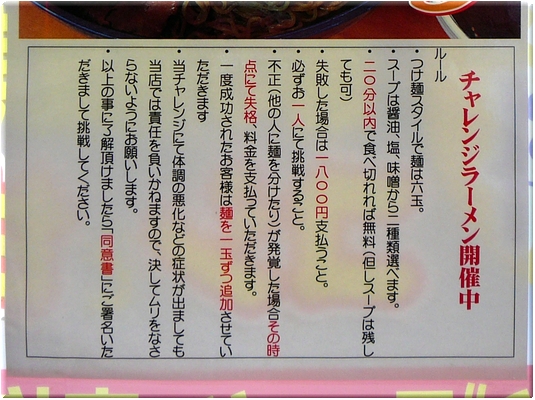 チャレンジラーメン開催中
ルール
・つけ麺スタイルで麺は六玉。
・スープは醤油、塩、味噌から二種類選べます。
・二〇分以内で食べ切れれば無料（但しスープは残し
ても可）
・失敗した場合は一八〇〇円支払うこと。
・必ずお一人にて挑戦すること。
・不正（他の人に麺を分けたり）が発覚した場合その時
点にて失格、料金を支払っていただきます。
・一度成功されたお客様は麺を一玉ずつ追加させてい
ただきます
・当チャレンジにて体調の悪化などの症状が出ましても
当店では責任を負いかねますので、決してムリをなさ
らないようにお願いします。
・以上の事に了解頂けましたら「同意書」にご署名いた
だきまして挑戦してください。